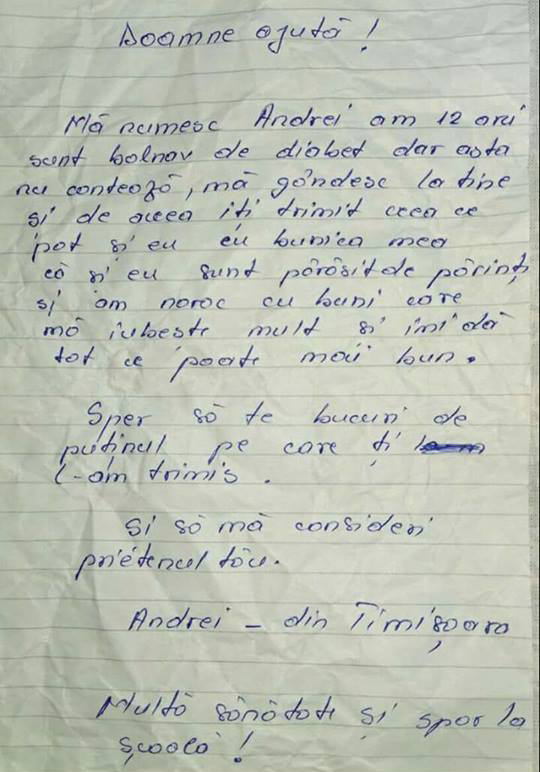 Doamne ajută!
Mă numesc Andrei am 12 ani
sunt bolnav de diabet dar asta
nu contează, mă gândesc la tine
și de aceea iți trimit ceea ce
pot și eu cu bunica mea
că și eu sunt părăsit de părinți
și am noroc cu buni care
mă iubește mult și îmi dă
tot ce poate mai bun.
Sper să te bucuri de
puținul pe care ți
l-am trimis.
Si să mă consideri
prietenul tău.
Andrei - din Timișoara
Multă sănătate și spor la
școală!